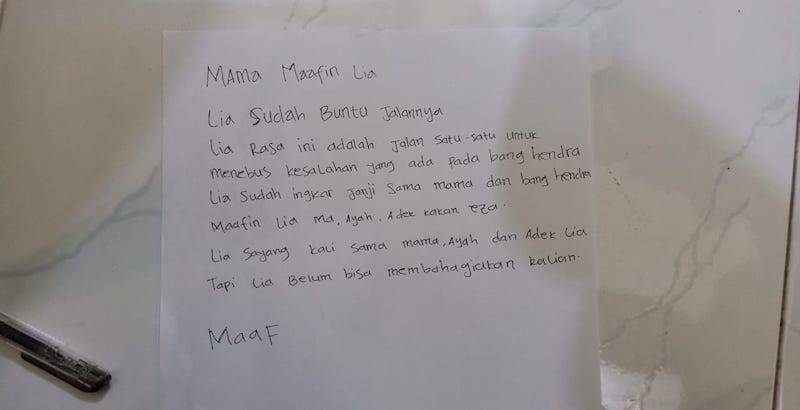 Mama Maafin Lia
Lia Sudah Buntu Jalannya
Lia Rasa ini adalah jalan satu-satu untuk
menebus kesalahan yang ada pada bang hendra
Lia Sudah ingkar janji sama mama dan bang hendra
Maafin Lia Ma, Ayah, Adek kakan eza.
Lia Sayang kali sama mama, Ayah dan Adek Lia
Tapi Lia Belum bisa membahagiakan kalian.
MaaF